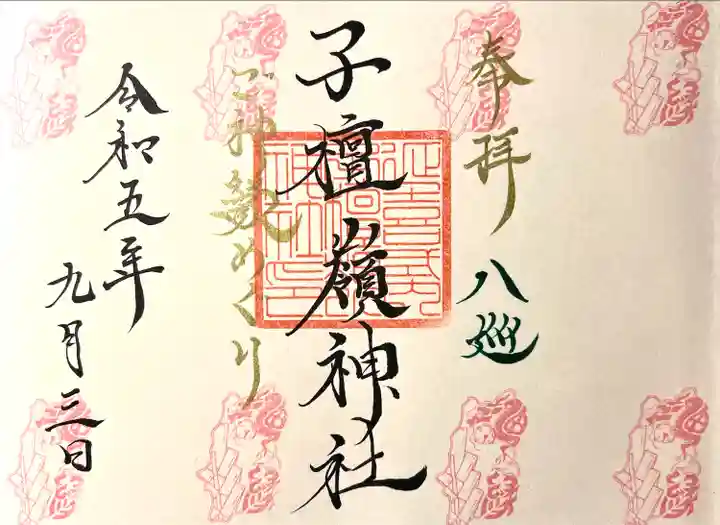 奉拝
八巡
子檀嶺神社
ご神鼓めぐり
令和五年
九月三日